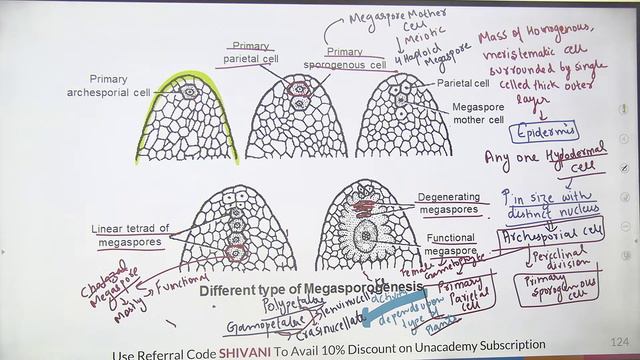 Megaspore Mother
Cell
↓ Meiotic
4 Haploid
Megaspore
Primary
parietal cell
Primary
sporogenous cell
Primary
archesporial cell
Parietal cell
Megaspore
mother cell
Mass of Homogenous,
meristematic cell
surrounded by single
celled thick outer
layer
↓
Epidermis
Any one Hypodermal
cell
↓
↑ in size with
distinct nucleus
↓
Archesporial cell
↓ Periclinal
division
Primary
Parietal
cell
Primary
sporogenous
cell
Linear tetrad of
megaspores
Degenerating
megaspores
Functional
megaspore
Female Gametophyte
Chalazal
Megaspore
↓
Mostly → Functional
Different type of Megasporogenesis
Polypetalae
Gamopetalae
Tenuinucellate
Crassinucellate
depends upon
type of
plants
Use Referral Code SHIVANI To Avail 10% Discount on Unacademy Subscription
124